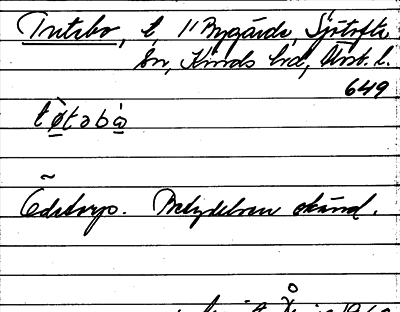 Tutebo, t. 1/1 Bygärde, Sjötofta
sn, Kinds hd, Älvsb. l.
649
tø̀təbò
Ödetorp. Betydelsen okänd.